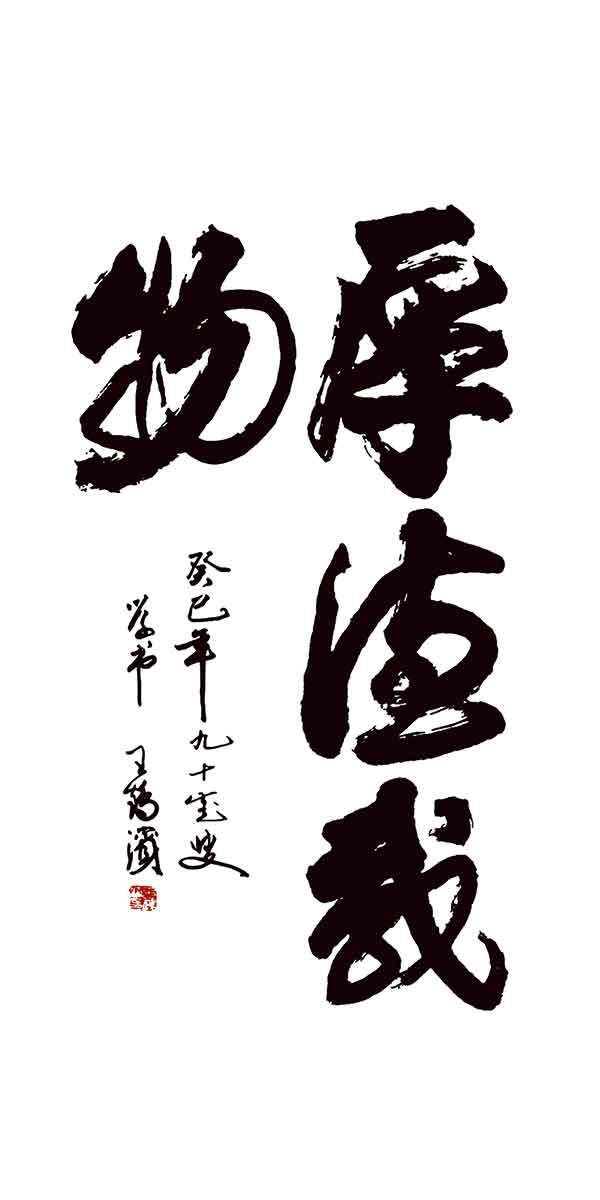 厚德载
物
癸巳年九十岁叟
学书 王鹤